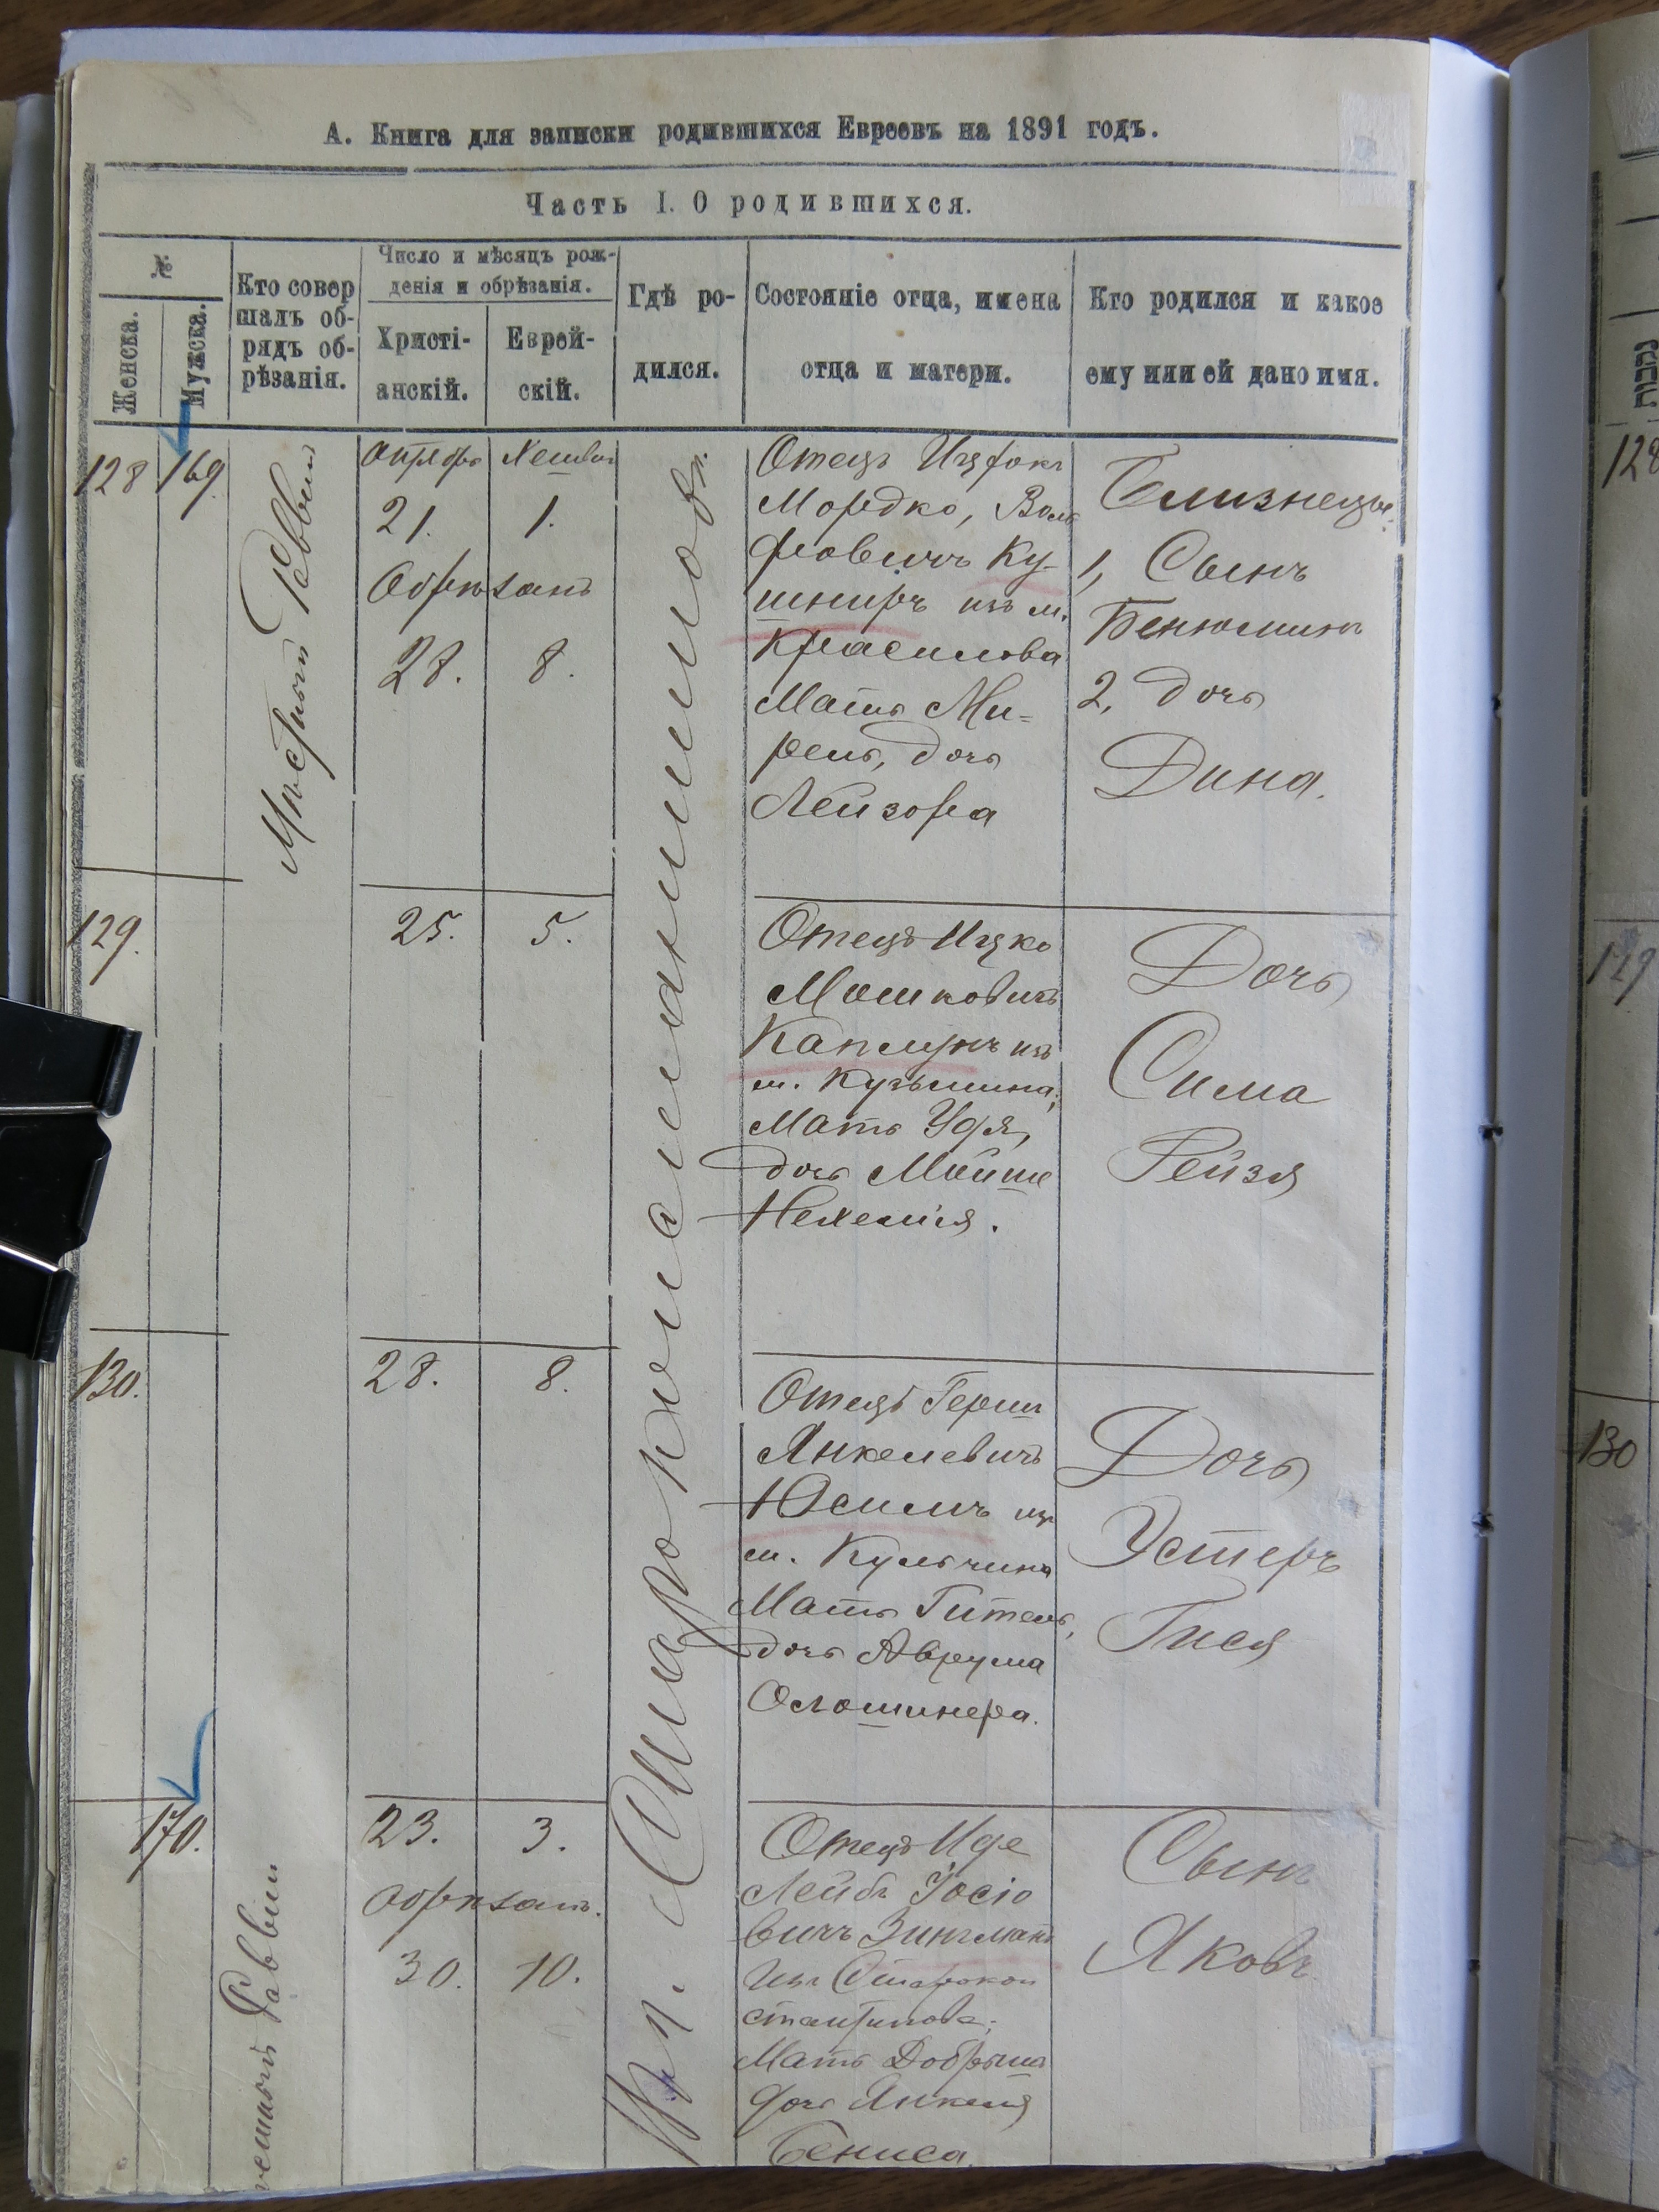 А. Книга для записки родившихся Евреевъ на 1891 годъ.
Часть I. О родившихся.
№
Женска.
Мужска.
Кто совер
шалъ об-
рядъ об-
рѣзанія.
Число и мѣсяцъ рож-
денія и обрѣзанія.
Христі-
анскій.
Еврей-
скій.
Гдѣ ро-
дился.
Состояніе отца, имена
отца и матери.
Кто родился и какое
ему или ей дано имя.
128
169
Мѣстный Раввин
21.
1.
Обрѣзанъ
28.
8.
Отецъ
Мордко, Воль
фовичъ Ку-
шниръ изъ м.
Красилова
Мать Ми-
рель, дочь
Лейзора
Близнецы:
1, Сынъ
Бенюминъ
2, дочь
Дина.
129.
25.
5.
Отецъ Ицко
Мошковичъ
Капмунъ изъ
м. Кузьмина,
Мать Удя,
дочь Мойше
Нехемія.
Дочь
Сима
Рейзя
130.
28.
8.
Отецъ Герш
Янкелевичъ
Юсимъ из
м. Кульчина
Мать Гитель,
дочь Аврума
Дочь
Эстеръ
Гися
170.
Раввин
23.
3.
Обрѣзанъ.
30.
10.
Отецъ Иде
Лейбъ Іосіо
вичъ Зингманъ
Изъ Старокон
стантинова;
Мать Добрыш
дочь Янкеля
Бениса.
Сынъ
Яковъ
128
129
130